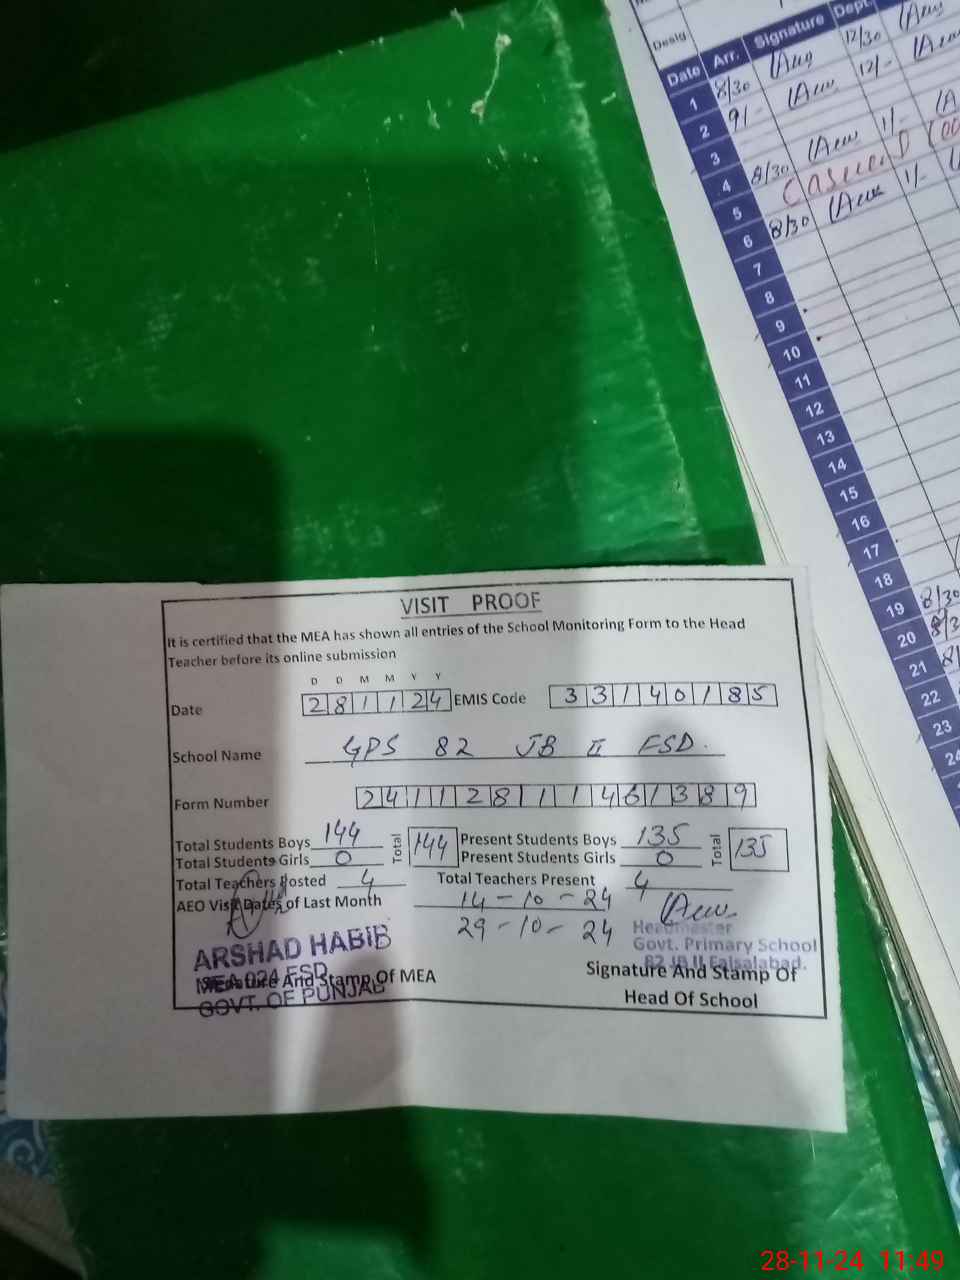 Desig
Date Arr. Signature Dept.
1 8/30 12/30
2 9/- 12/-
3
4 8/30 1/-
5
6 8/30 1/-
7
8
9
10
11
12
13
14
15
16
17
18
19 8/30
20
21
22
23
VISIT PROOF
It is certified that the MEA has shown all entries of the School Monitoring Form to the Head
Teacher before its online submission
D D M M Y Y
Date 281124 EMIS Code 33140185
School Name GPS 82 JB II FSD.
Form Number 241128111461389
Total Students Boys 144 Total 144 Present Students Boys 135 Total 135
Total Students Girls 0 Present Students Girls 0
Total Teachers Posted 4 Total Teachers Present 4
AEO Visit Dates of Last Month 14-10-24
29-10-24
Headmaster
Govt. Primary School
82 JB II Faisalabad.
ARSHAD HABIB
MEA 024 FSD
GOVT. OF PUNJAB
Signature And Stamp Of MEA
Signature And Stamp Of
Head Of School
28-11-24 11:49